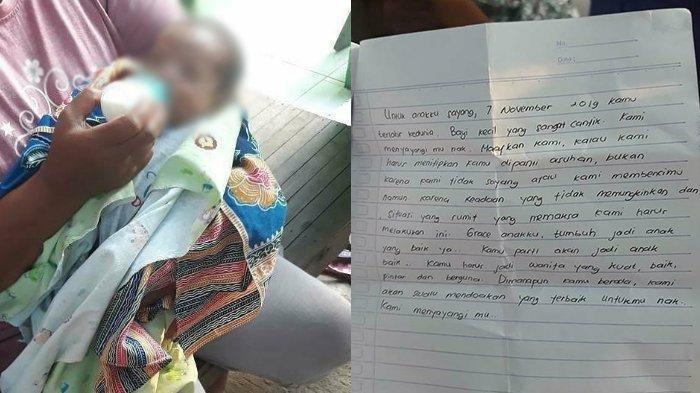 No:
Date:
Untuk anakku sayang, 7 November 2019 kamu
terlahir kedunia. Bayi kecil yang sangat cantik. Kami
menyayangi mu nak. Maafkan kami, kalau kami
harus menitipkan kamu dipanti asuhan, bukan
karena kami tidak sayang atau kami membencimu
namun karena keadaan yang tidak memungkinkan dan
situasi yang rumit yang memaksa kami harus
melakukan ini. Grace anakku, tumbuh jadi anak
yang baik ya.. Kamu pasti akan jadi anak
baik.. Kamu harus jadi wanita yang kuat, baik,
pintar dan berguna. Dimanapun kamu berada, kami
akan selalu mendoakan yang terbaik untukmu nak..
Kami menyayangi mu..